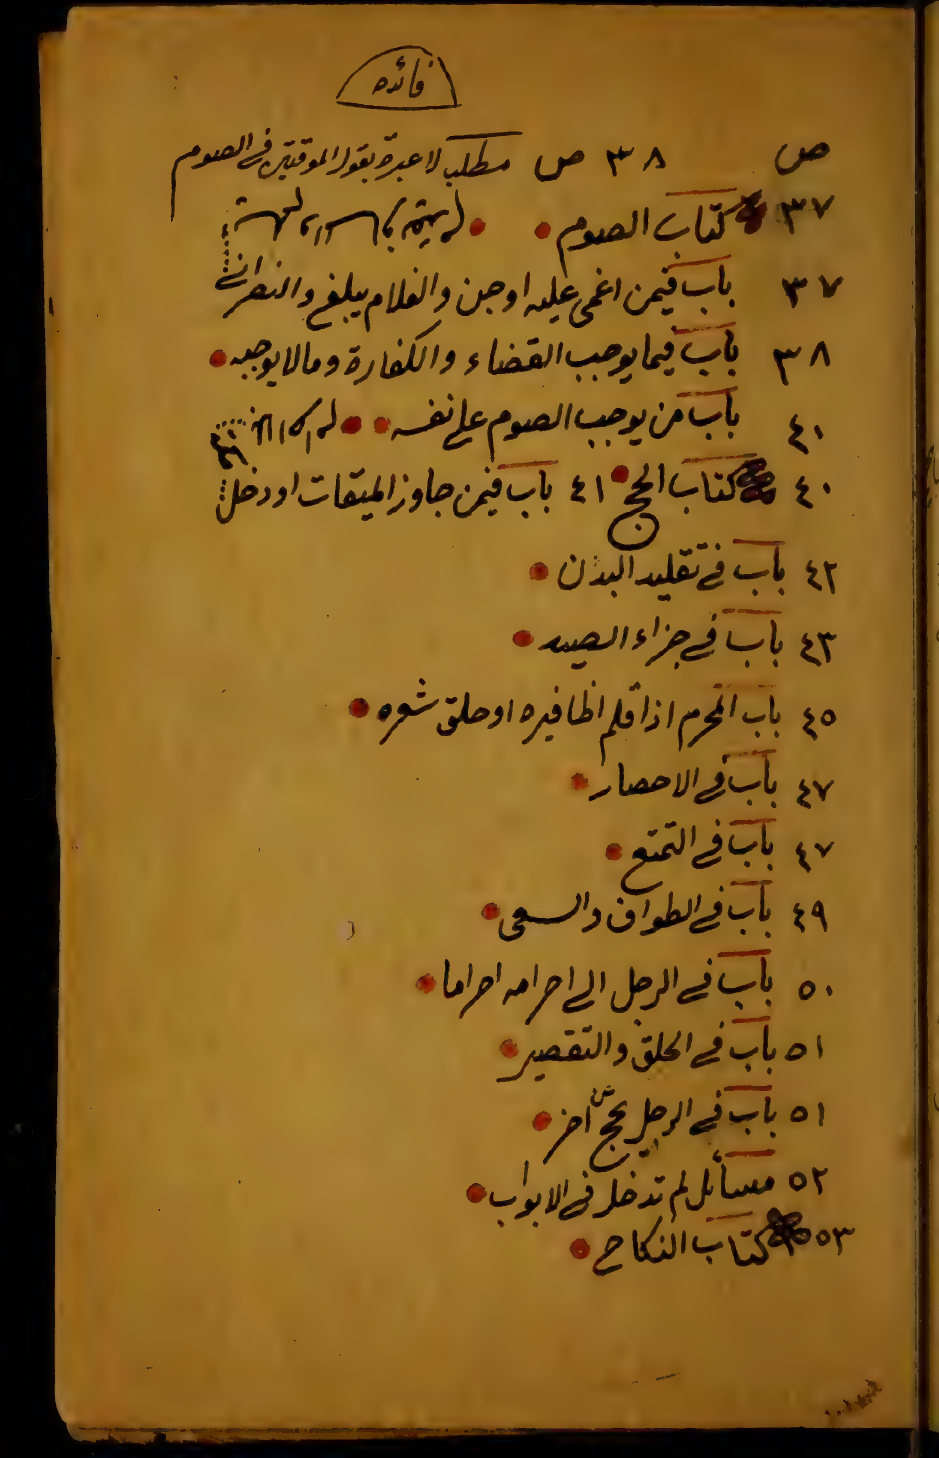 فائده
ص ٣٨ ص مطلب لا عبرة بقول الموقتين في الصوم
٣٧ كتاب الصوم
٣٧ باب فيمن اغمى عليه او جن والغلام يبلغ والنصراني
٣٨ باب فيما يوجب القضاء والكفارة ومالا يوجبه
٤٠ باب من يوجب الصوم على نفسه
٤٠ كتاب الحج ٤١ باب فيمن جاوز الميقات او دخل
٤٢ باب في تقليد البدن
٤٣ باب في جزاء الصيد
٤٥ باب المحرم اذا قلم اظافيره او حلق شعره
٤٧ باب في الاحصار
٤٧ باب في التمتع
٤٩ باب في الطواف والسعى
٥٠ باب في الرجل الى احرامه احراما
٥١ باب في الحلق والتقصير
٥١ باب في الرجل يحج عن اخر
٥٢ مسائل لم تدخل في الابواب
٥٣ كتاب النكاح